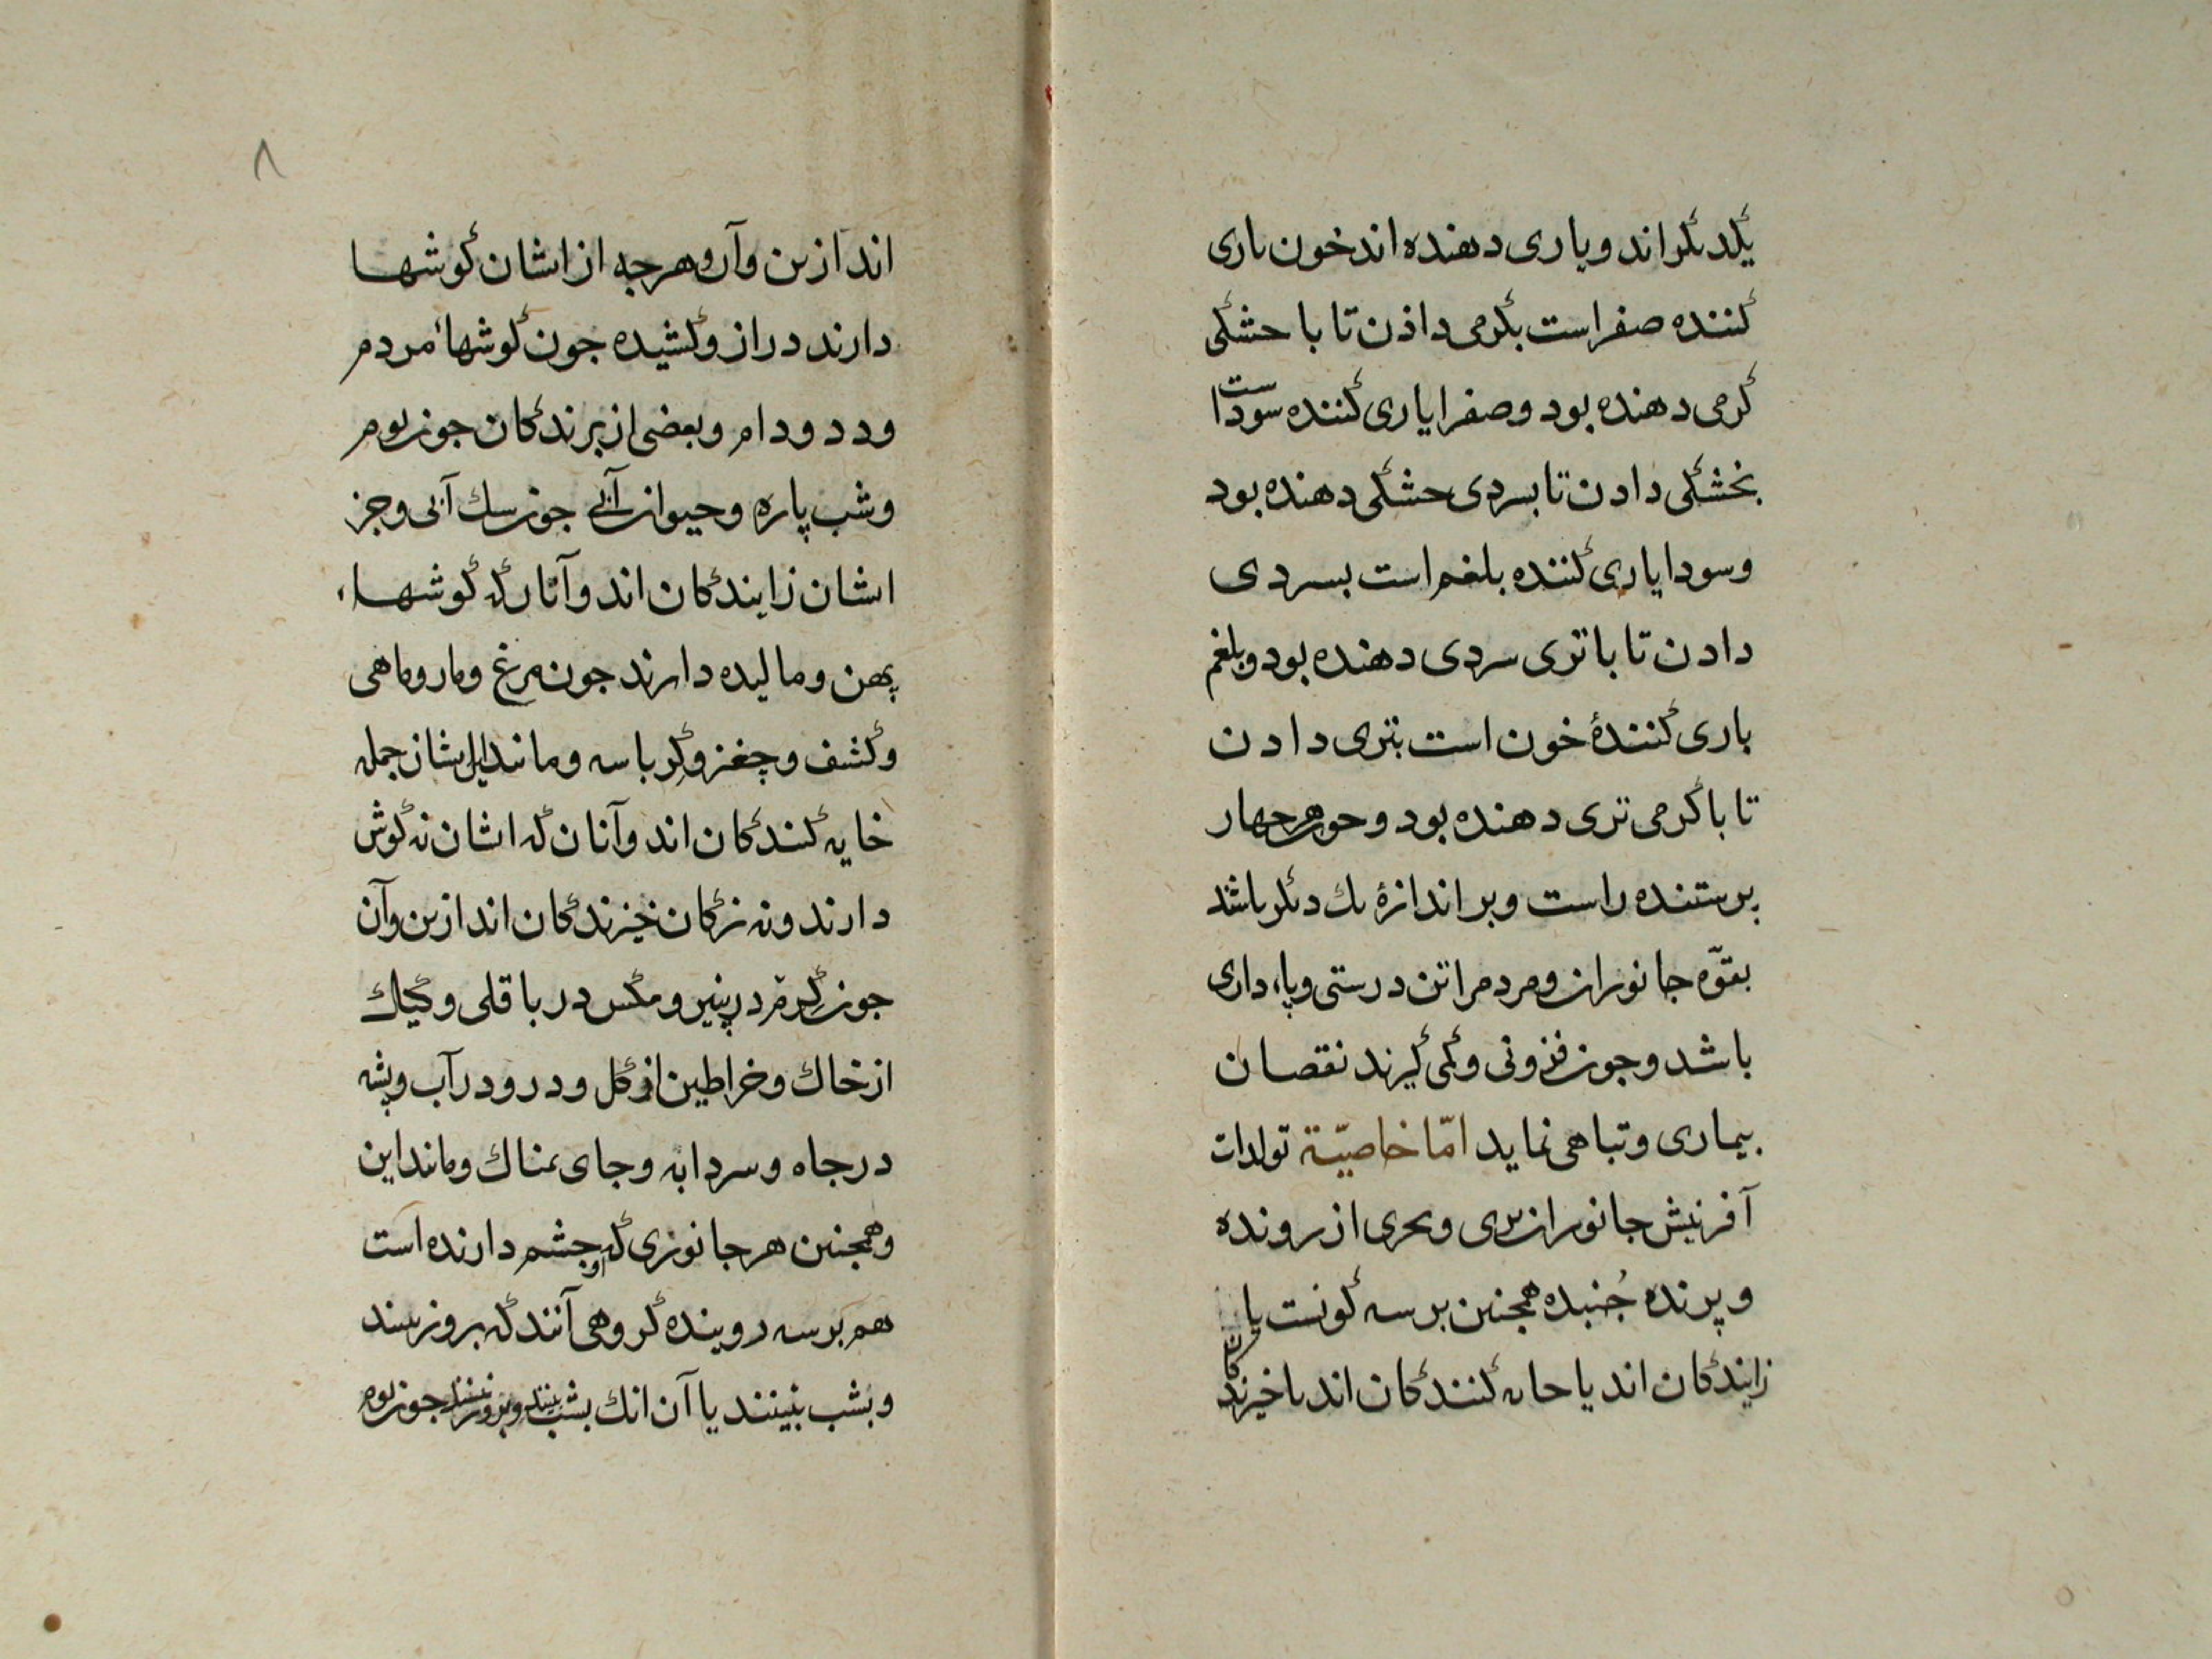 یکدیکراند ویاری دهنده اند خون یاری
کننده صفراست بکرمی داذن تا با خشکی
کرمی دهنده بود وصفرا یاری کننده سوداست
بخشکی دادن تا بسردی خشکی دهنده بود
وسودا یاری کننده بلغم است بسردی
دادن تا با تری سردی دهنده بود وبلغم
یاری کنندۀ خون است بتری دادن
تا با کرمی تری دهنده بود وجون هر جهار
برستنده راست وبر اندازۀ یك دیکر باشد
بقوّه جانوران ومردم را تن درستی وپاء داری
باشد وجون فزونی وکمی کیرند نقصان
بیماری وتباهی نماید امّا خاصیّة تولدات
آفرینش جانوران بری وبحری از رونده
وپرنده جُنبده همجنین بر سه کونست یا
زایندکان اند یا خایه کنندکان اند یا خیزندکان
۸
اند از ین وآن وهر جه از ایشان کوشها
دارند دراز وکشیده جون کوشهاء مردم
ودد ودام وبعضی از پرندکان جون بوم
وشب پاره وحیوان آبی جون سك آبی وجز
ایشان زایندکان اند وآنان که کوشهاء
پهن ومالیده دارند جون مرغ ومار وماهی
وکشف وچغز وکرباسه ومانند ایشان جمله
خایه کنندکان اند وآنان که ایشان نه کوش
دارند ونه نزکان خیزندکان اند از ین وآن
جون کرم در پنیر ومکس در باقلی وکیك
از خاك وخراطین از کل ودر رود آب وپشه
در جاه وسردابه وجای نمناك ومانند این
وهمجنین هر جانوری که او جشم دارنده است
هم بر سه روینده کروهی آنند که بروز بینند
وبشب نبینند یا آن انك بشب بینند وبروز نبینند جون بوم